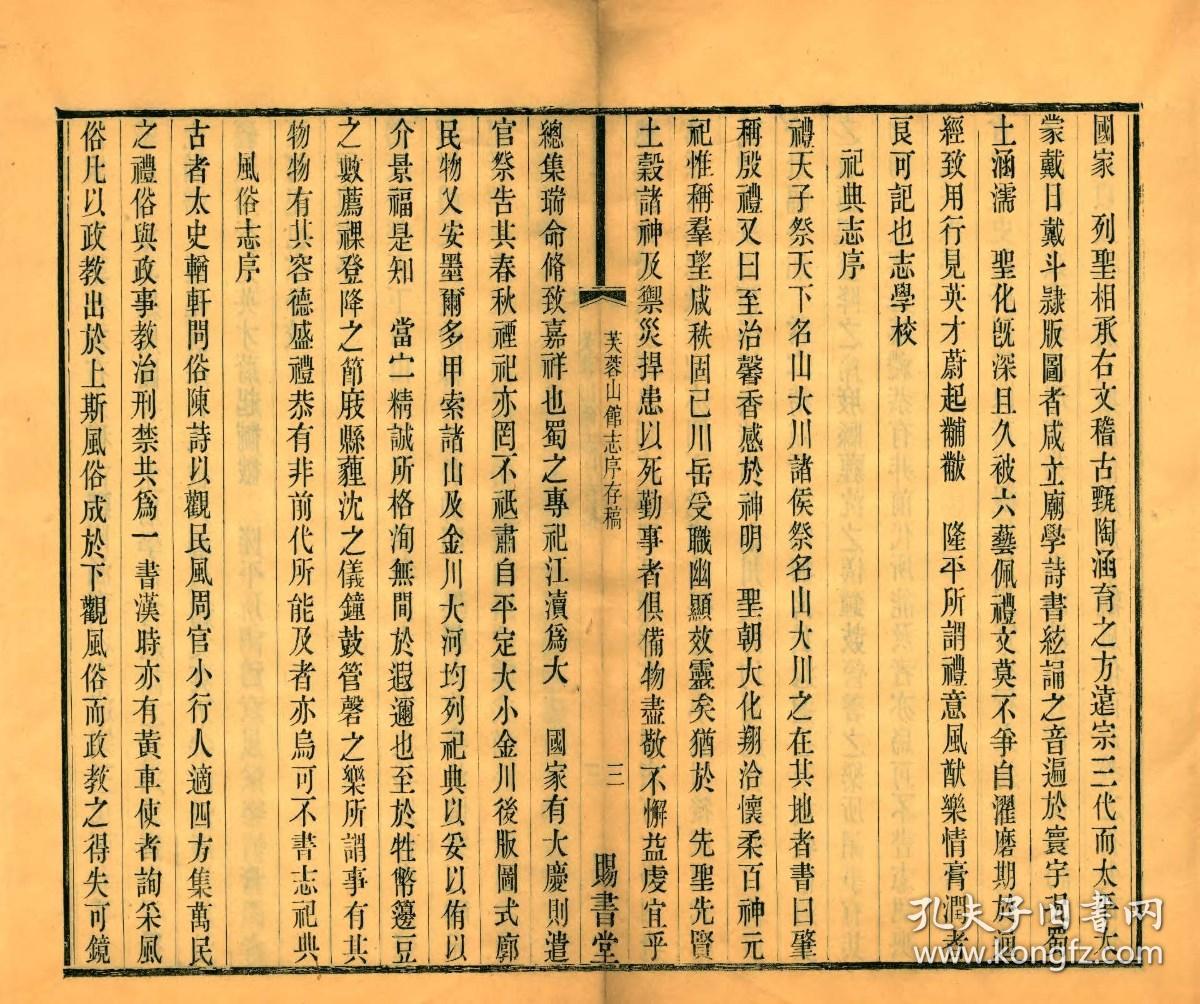 國家 列聖相承右文稽古甄陶涵育之方遠宗三代而太平大
蒙戴日戴斗隸版圖者咸立廟學詩書絃誦之音遍於寰宇蜀
土涵濡 聖化旣深且久被六藝佩禮文莫不爭自濯磨期於
經致用行見英才蔚起黼黻 隆平所謂禮意風猷樂情膏潤者
良可記也志學校
祀典志序
禮天子祭天下名山大川諸侯祭名山大川之在其地者書曰肇
稱殷禮又曰至治馨香感於神明 聖朝大化翔洽懷柔百神元
祀惟稱羣望咸秩固已川岳受職幽顯效靈矣猶於 先聖先賢
土穀諸神及禦災捍患以死勤事者俱備物盡敬不懈益虔宜乎
芙蓉山館志序存稿
三
賜書堂
總集瑞命脩致嘉祥也蜀之專祀江瀆爲大 國家有大慶則遣
官祭告其春秋禋祀亦罔不祗肅自平定大小金川後版圖式廓
民物又安墨爾多甲索諸山及金川大河均列祀典以妥以侑以
介景福是知 當宁精誠所格洵無間於遐邇也至於牲幣籩豆
之數薦祼登降之節庪縣薶沈之儀鐘鼓管磬之樂所謂事有其
物物有其容德盛禮恭有非前代所能及者亦烏可不書志祀典
風俗志序
古者太史輶軒問俗陳詩以觀民風周官小行人適四方集萬民
之禮俗與政事教治刑禁共爲一書漢時亦有黃車使者詢采風
俗凡以政教出於上斯風俗成於下觀風俗而政教之得失可鏡
孔夫子旧書网
www.kongfz.com